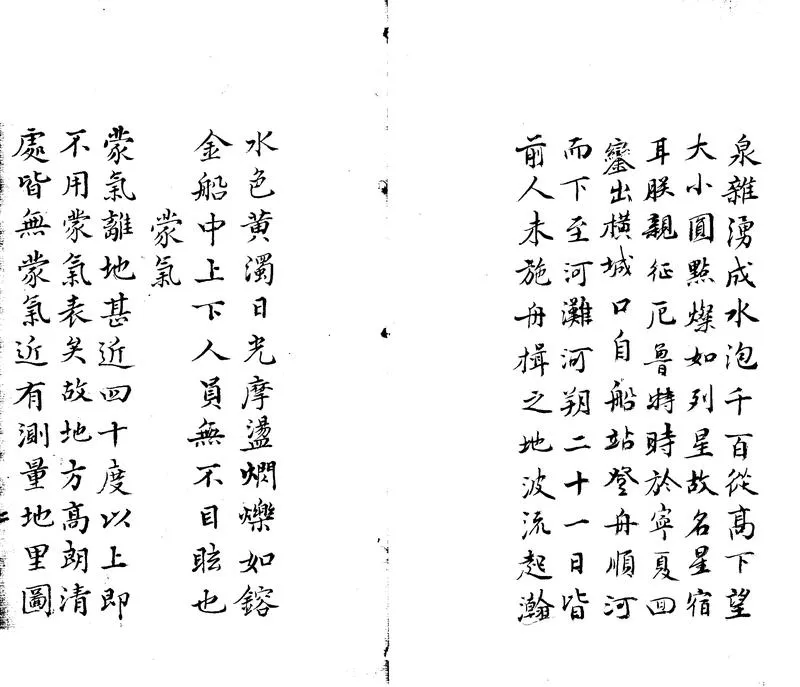 泉雜湧成水泡千百從高下望
大小圓點燦如列星故名星宿
耳朕親征厄魯特時於寧夏回
鑾出橫城口自船站登舟順河
而下至河灘河朔二十一日皆
前人未施舟楫之地波流起瀚
水色黃濁日光摩盪爛爍如鎔
金船中上下人員無不目眩也
蒙氣
蒙氣離地甚近四十度以上即
不用蒙氣表矣故地方高朗清
處皆無蒙氣近有測量地里圖